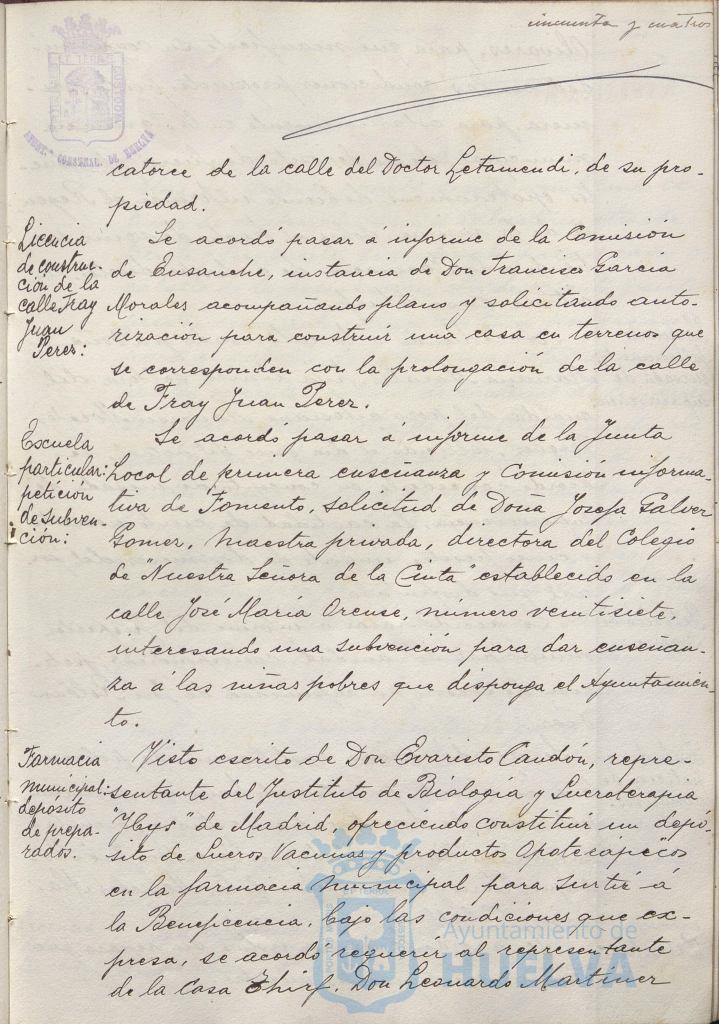 cincuenta y cuatro
catorce de la calle del Doctor Letamendi, de su pro-
piedad.
Licencia
de construc-
ción de la
calle Fray
Juan
Perez:
Se acordó pasar á informe de la Comisión
de Ensanche, instancia de Don Francisco Garcia
Morales acompañando plano y solicitando auto-
rización para construir una casa en terrenos que
se corresponden con la prolongación de la calle
de Fray Juan Perez.
Escuela
particular:
petición
de subven-
ción:
Se acordó pasar á informe de la Junta
Local de primera enseñanza y Comisión informa-
tiva de Fomento, solicitud de Doña Josefa Galver
Gomez, Maestra privada, directora del Colegio
de "Nuestra Señora de la Cinta" establecido en la
calle José Maria Orense, número veintisiete,
interesando una subvención para dar enseñan-
za á las niñas pobres que disponga el Ayuntamien-
to.
Farmacia
municipal:
deposito
de prepa-
rados.
Visto escrito de Don Evaristo Candón, repre-
sentante del Instituto de Biología y Sueroterapia
"Ibys" de Madrid, ofreciendo constituir un depó-
sito de Sueros Vacunas y productos
en la farmacia Municipal para surtir á
la Beneficencia, bajo las condiciones que ex-
presa, se acordó requerir al representante
de la Casa Thirf, Don Leonardo Martinez
Ayuntamiento de
HUELVA